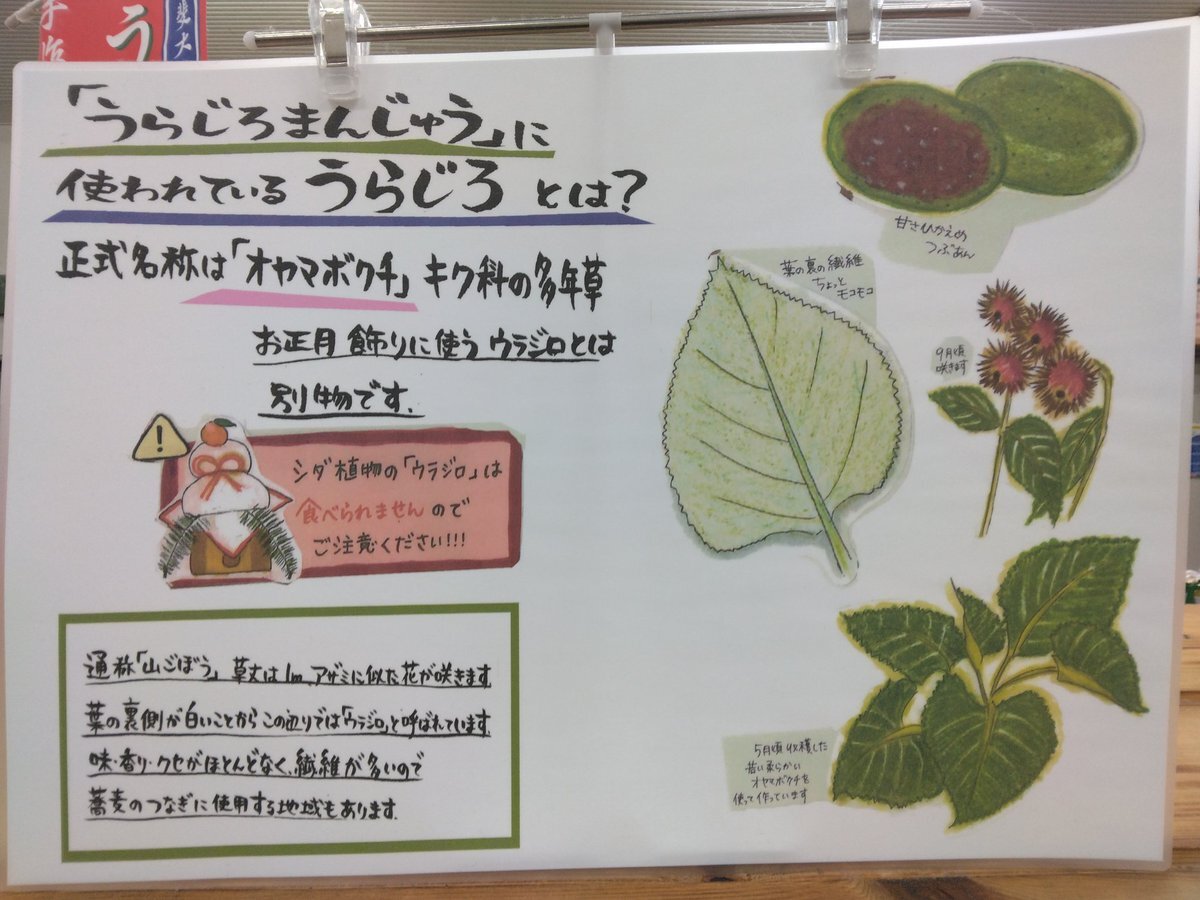 「うらじろまんじゅう」に
使われている うらじろ とは?
正式名称は「オヤマボクチ」キク科の多年草
お正月飾りに使うウラジロとは
別物です.
シダ植物の「ウラジロ」は
食べられませんので
ご注意ください!!!
通称「山ごぼう」草丈は1m、アザミに似た花が咲きます
葉の裏側が白いことからこの辺りでは「ウラジロ」と呼ばれています.
味・香り・クセがほとんどなく、繊維が多いので
蕎麦のつなぎに使用する地域もあります.
甘さひかえめ
つぶあん
葉の裏の繊維
ちょっと
モコモコ
9月頃
咲きます
5月頃収穫した
若い柔らかい
オヤマボクチを
使って作っています
う